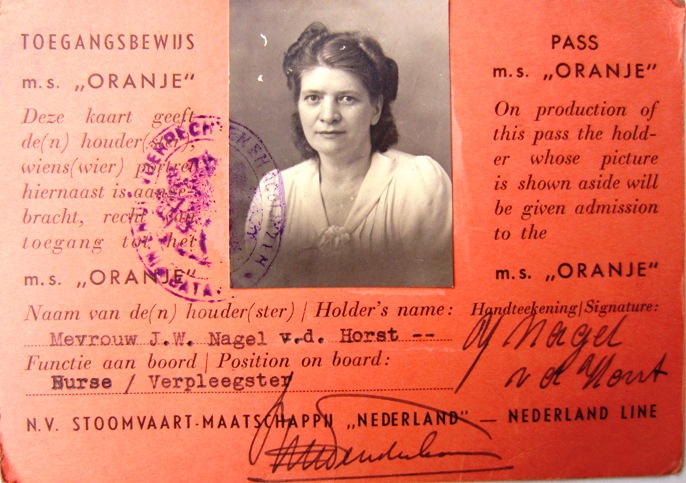 TOEGANGSBEWIJS
m.s. „ORANJE”
Deze kaart geeft
de(n) houder(ster),
wiens(wier) portret
hiernaast is aange-
bracht, recht van
toegang tot het
m.s. „ORANJE”
PASS
m.s. „ORANJE”
On production of
this pass the hold-
er whose picture
is shown aside will
be given admission
to the
m.s. „ORANJE”
Naam van de(n) houder(ster) | Holder's name:
Mevrouw J.W. Nagel v.d. Horst --
Functie aan boord | Position on board:
Burse / Verpleegster
Handteekening | Signature:
Nagel
v d Horst
N.V. STOOMVAART-MAATSCHAPPIJ „NEDERLAND” — NEDERLAND LINE